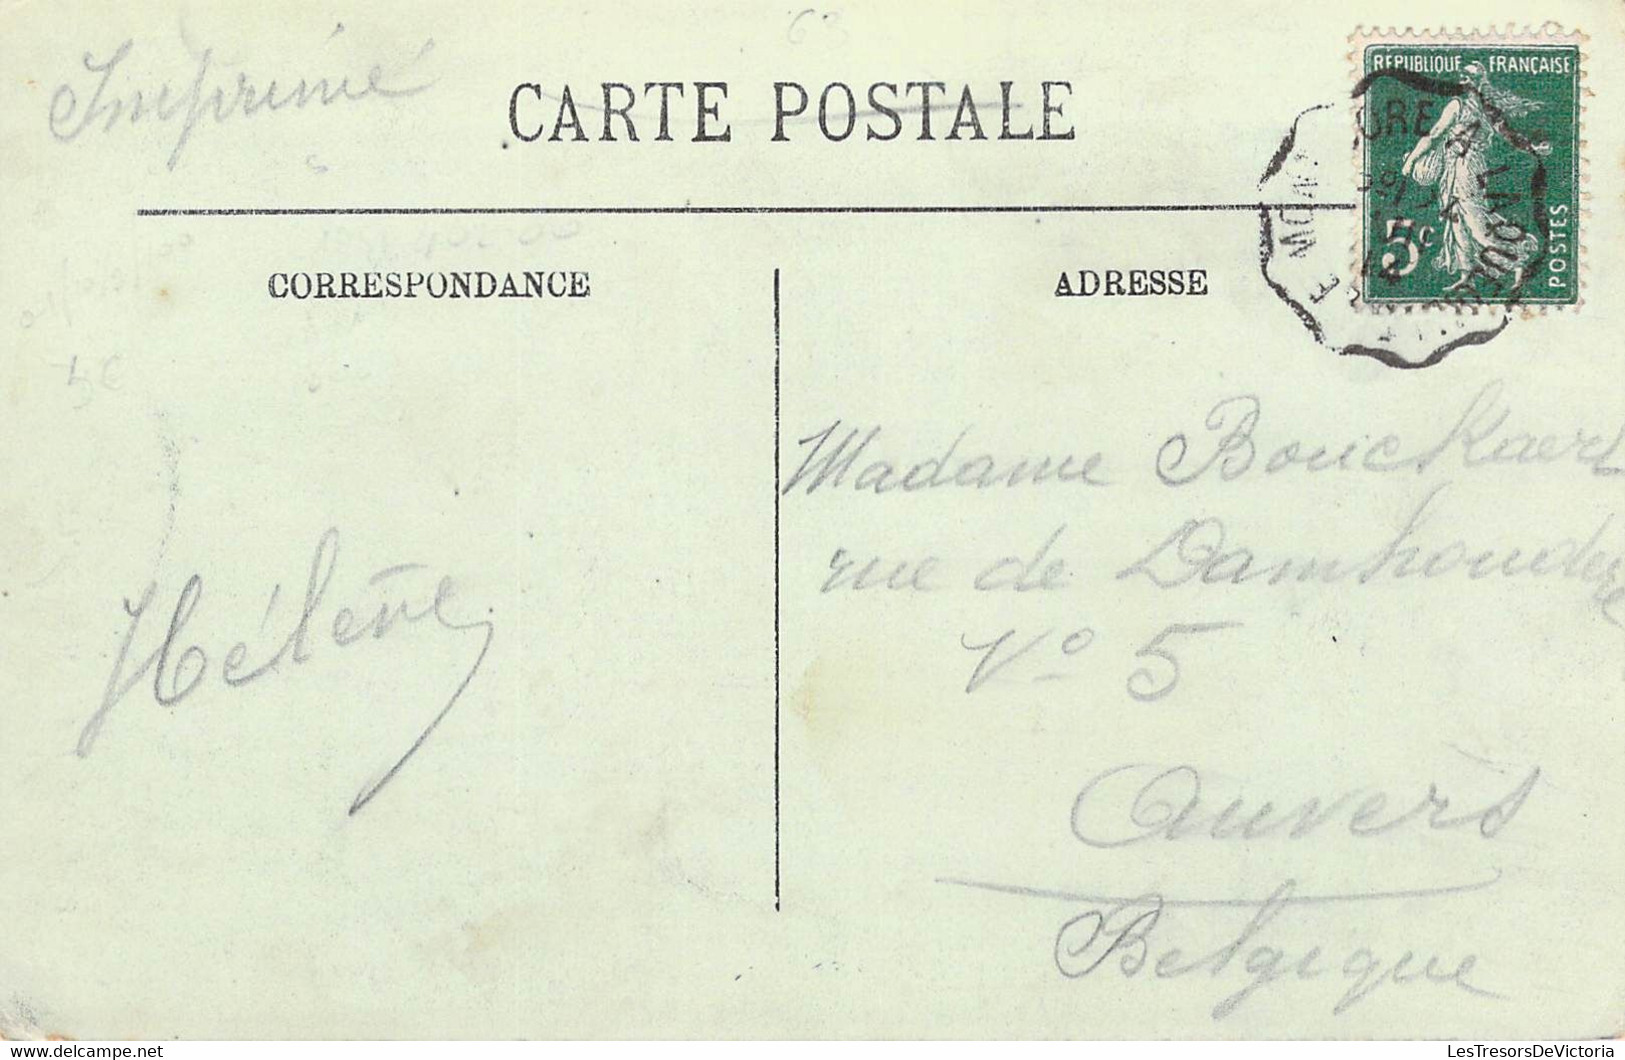 Imprimé
CARTE POSTALE
RÉPUBLIQUE FRANÇAISE
5c
POSTES
CORRESPONDANCE
ADRESSE
Madame Bouckaert
rue de Damhoudere
N° 5
Anvers
Belgique
Hélène
LesTresorsDeVictoria